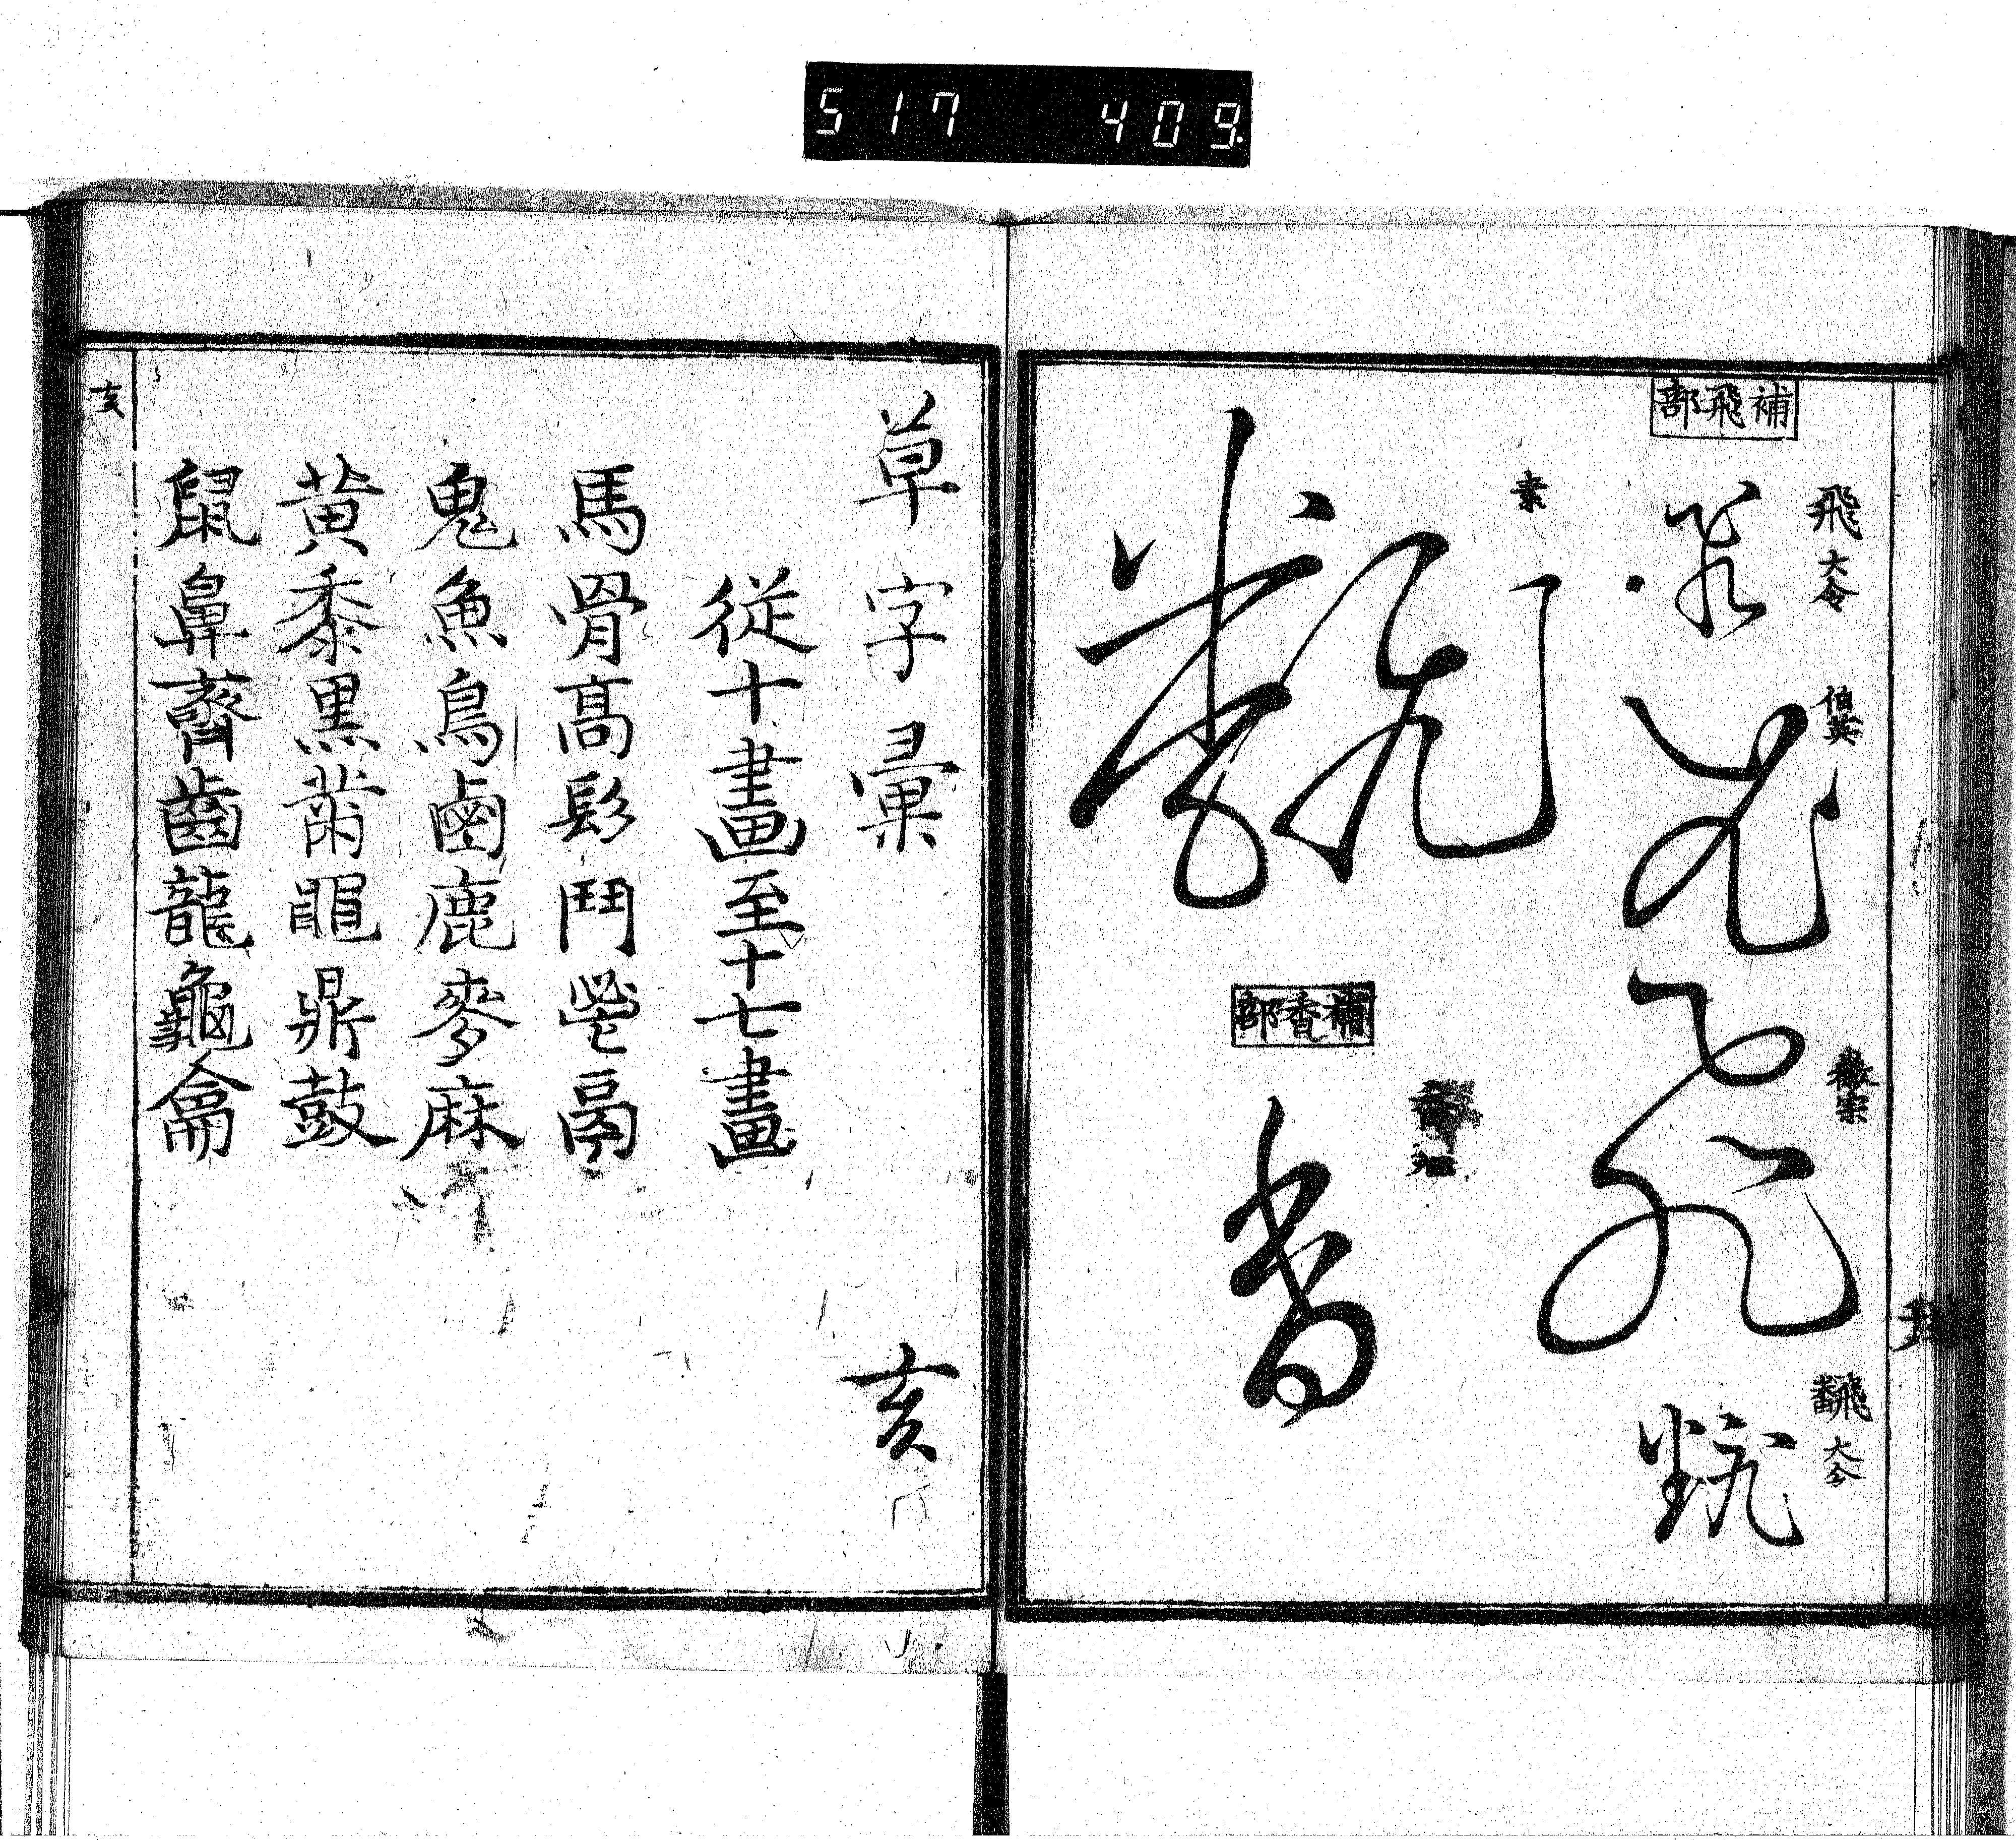 517 409
補飛部
飛 大令
伯英
徽宗
飜 大令
素
補香部
香
草字彙 亥
從十畫至十七畫
馬骨高髟鬥鬯鬲
鬼魚鳥鹵鹿麥麻
黃黍黑黹黽鼎鼓
鼠鼻齊齒龍龜龠
亥